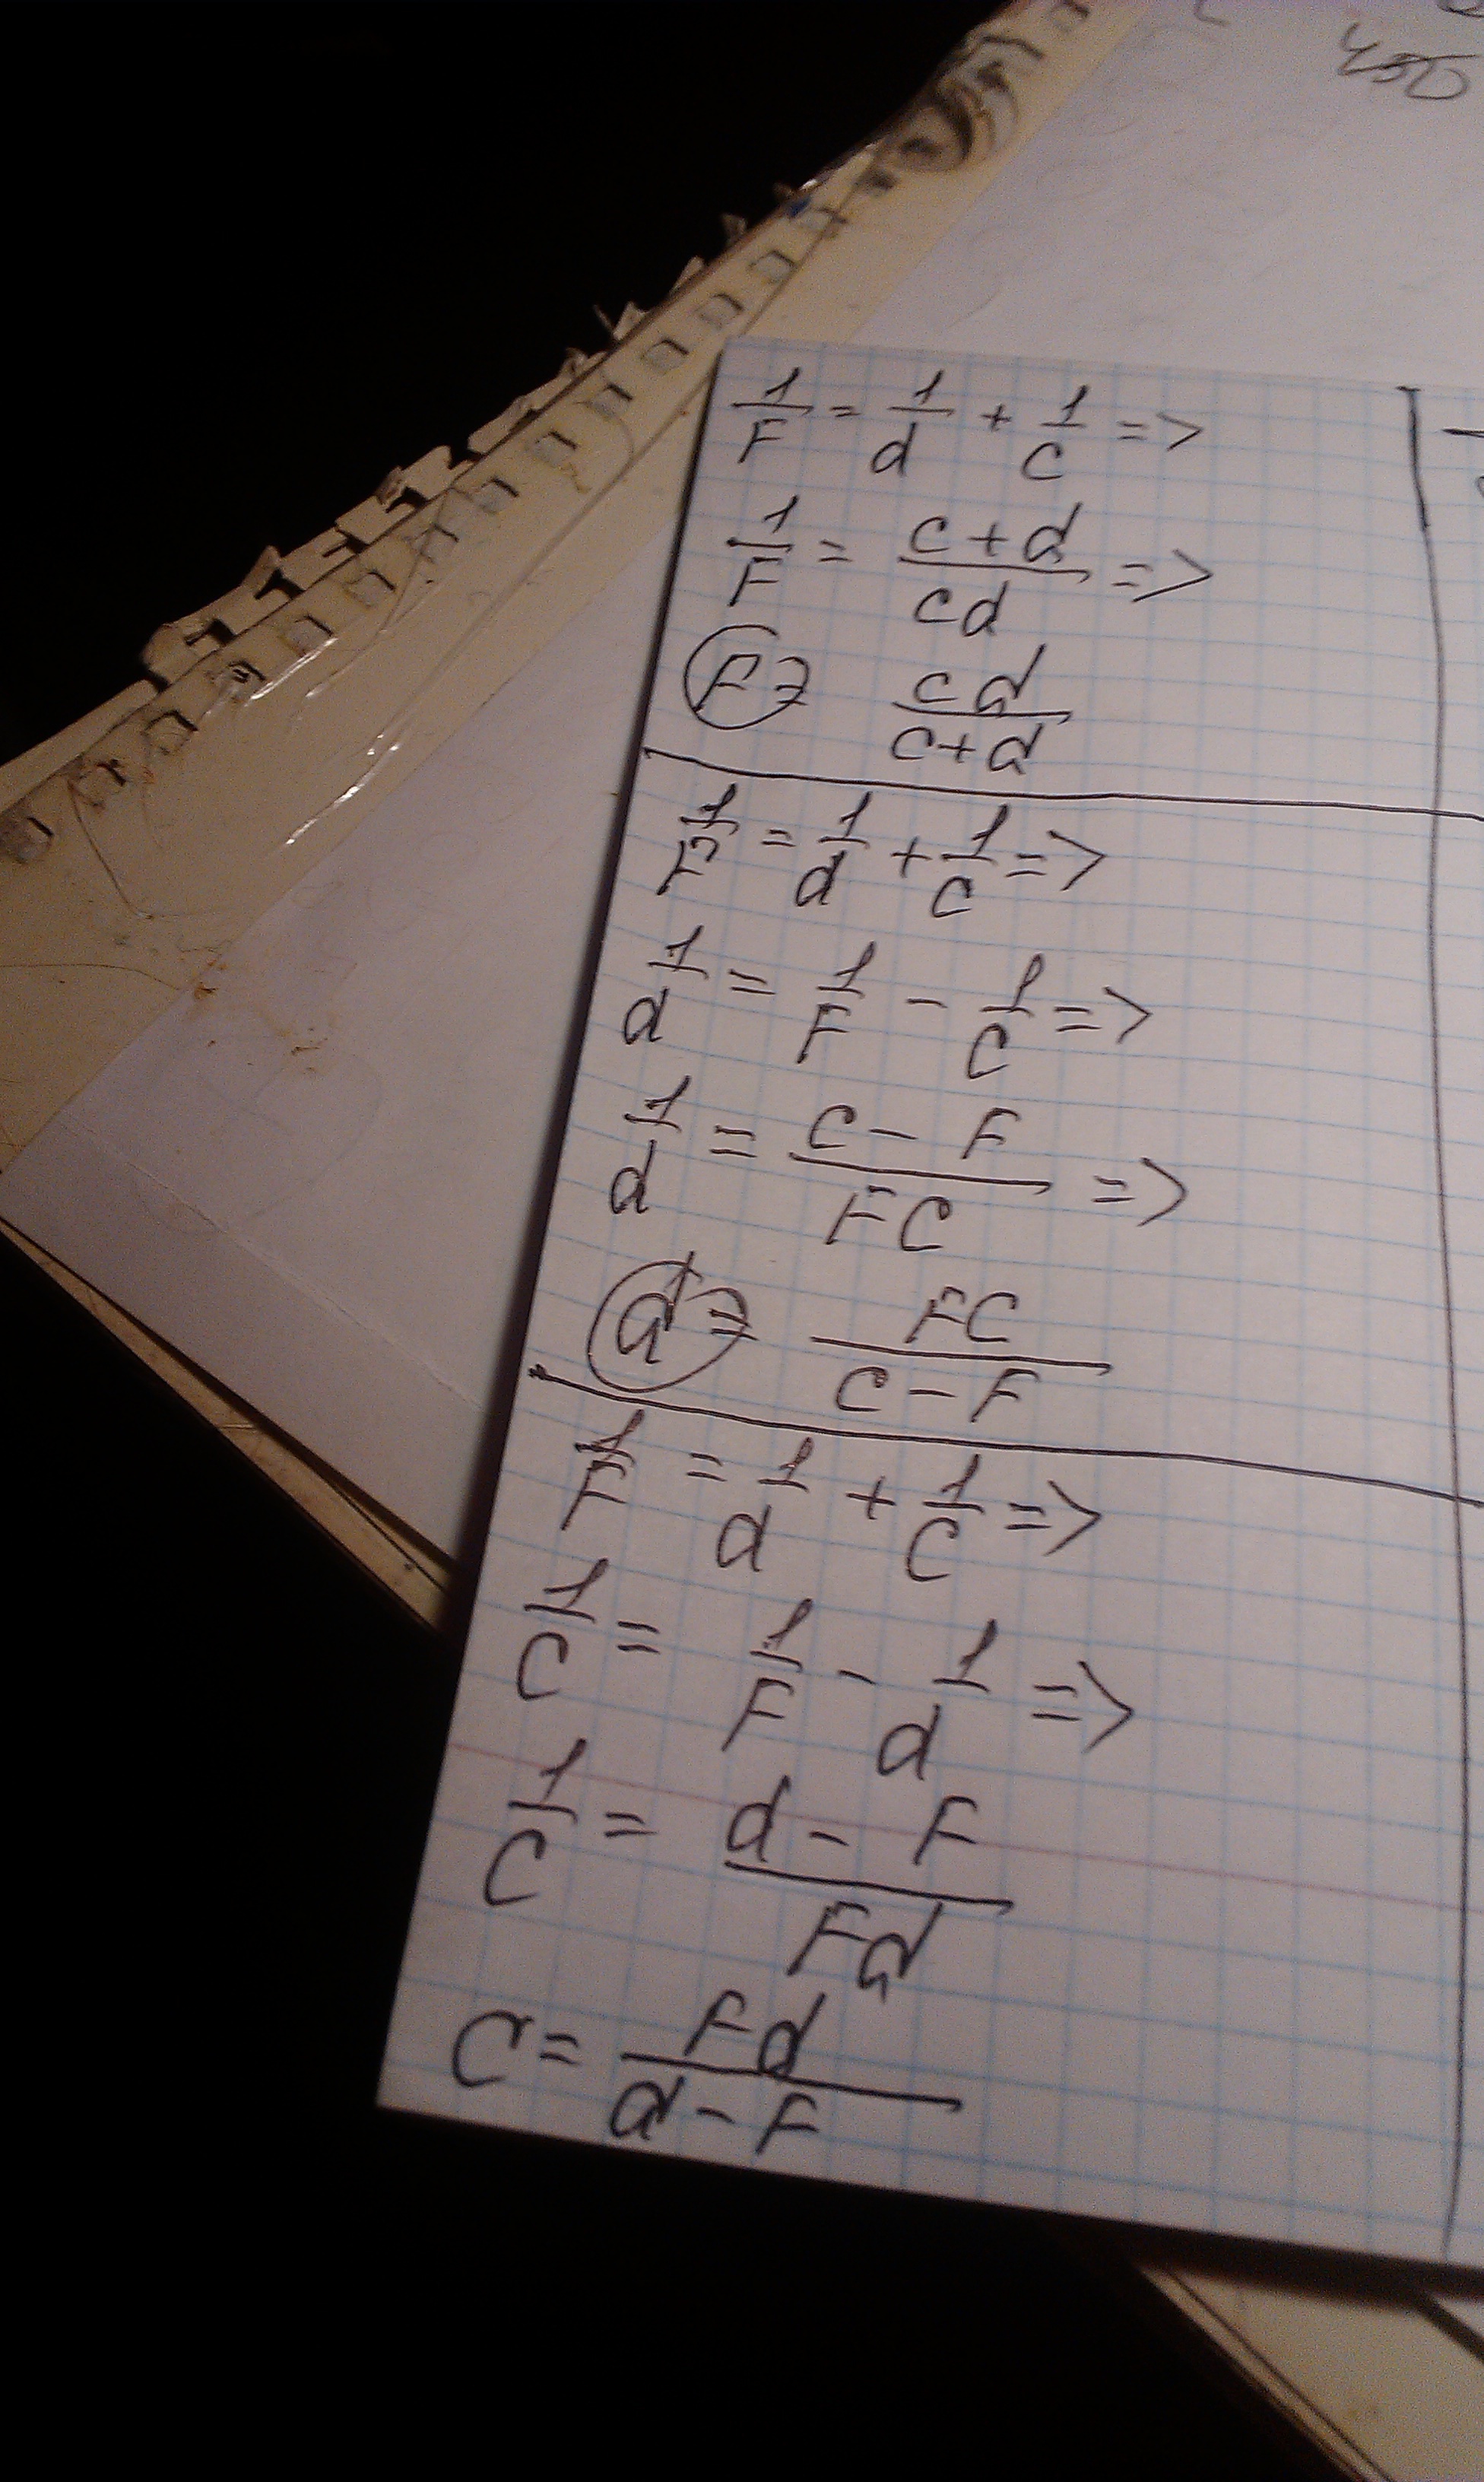 450
1/F = 1/d + 1/c =>
1/F = c+d/cd =>
F = cd/c+d
1/F = 1/d + 1/c =>
1/d = 1/F - 1/C =>
1/d = C - F/FC =>
d = FC/C-F
1/F = 1/d + 1/C =>
1/C = 1/F - 1/d =>
1/C = d - F/Fd
C = Fd/d-F